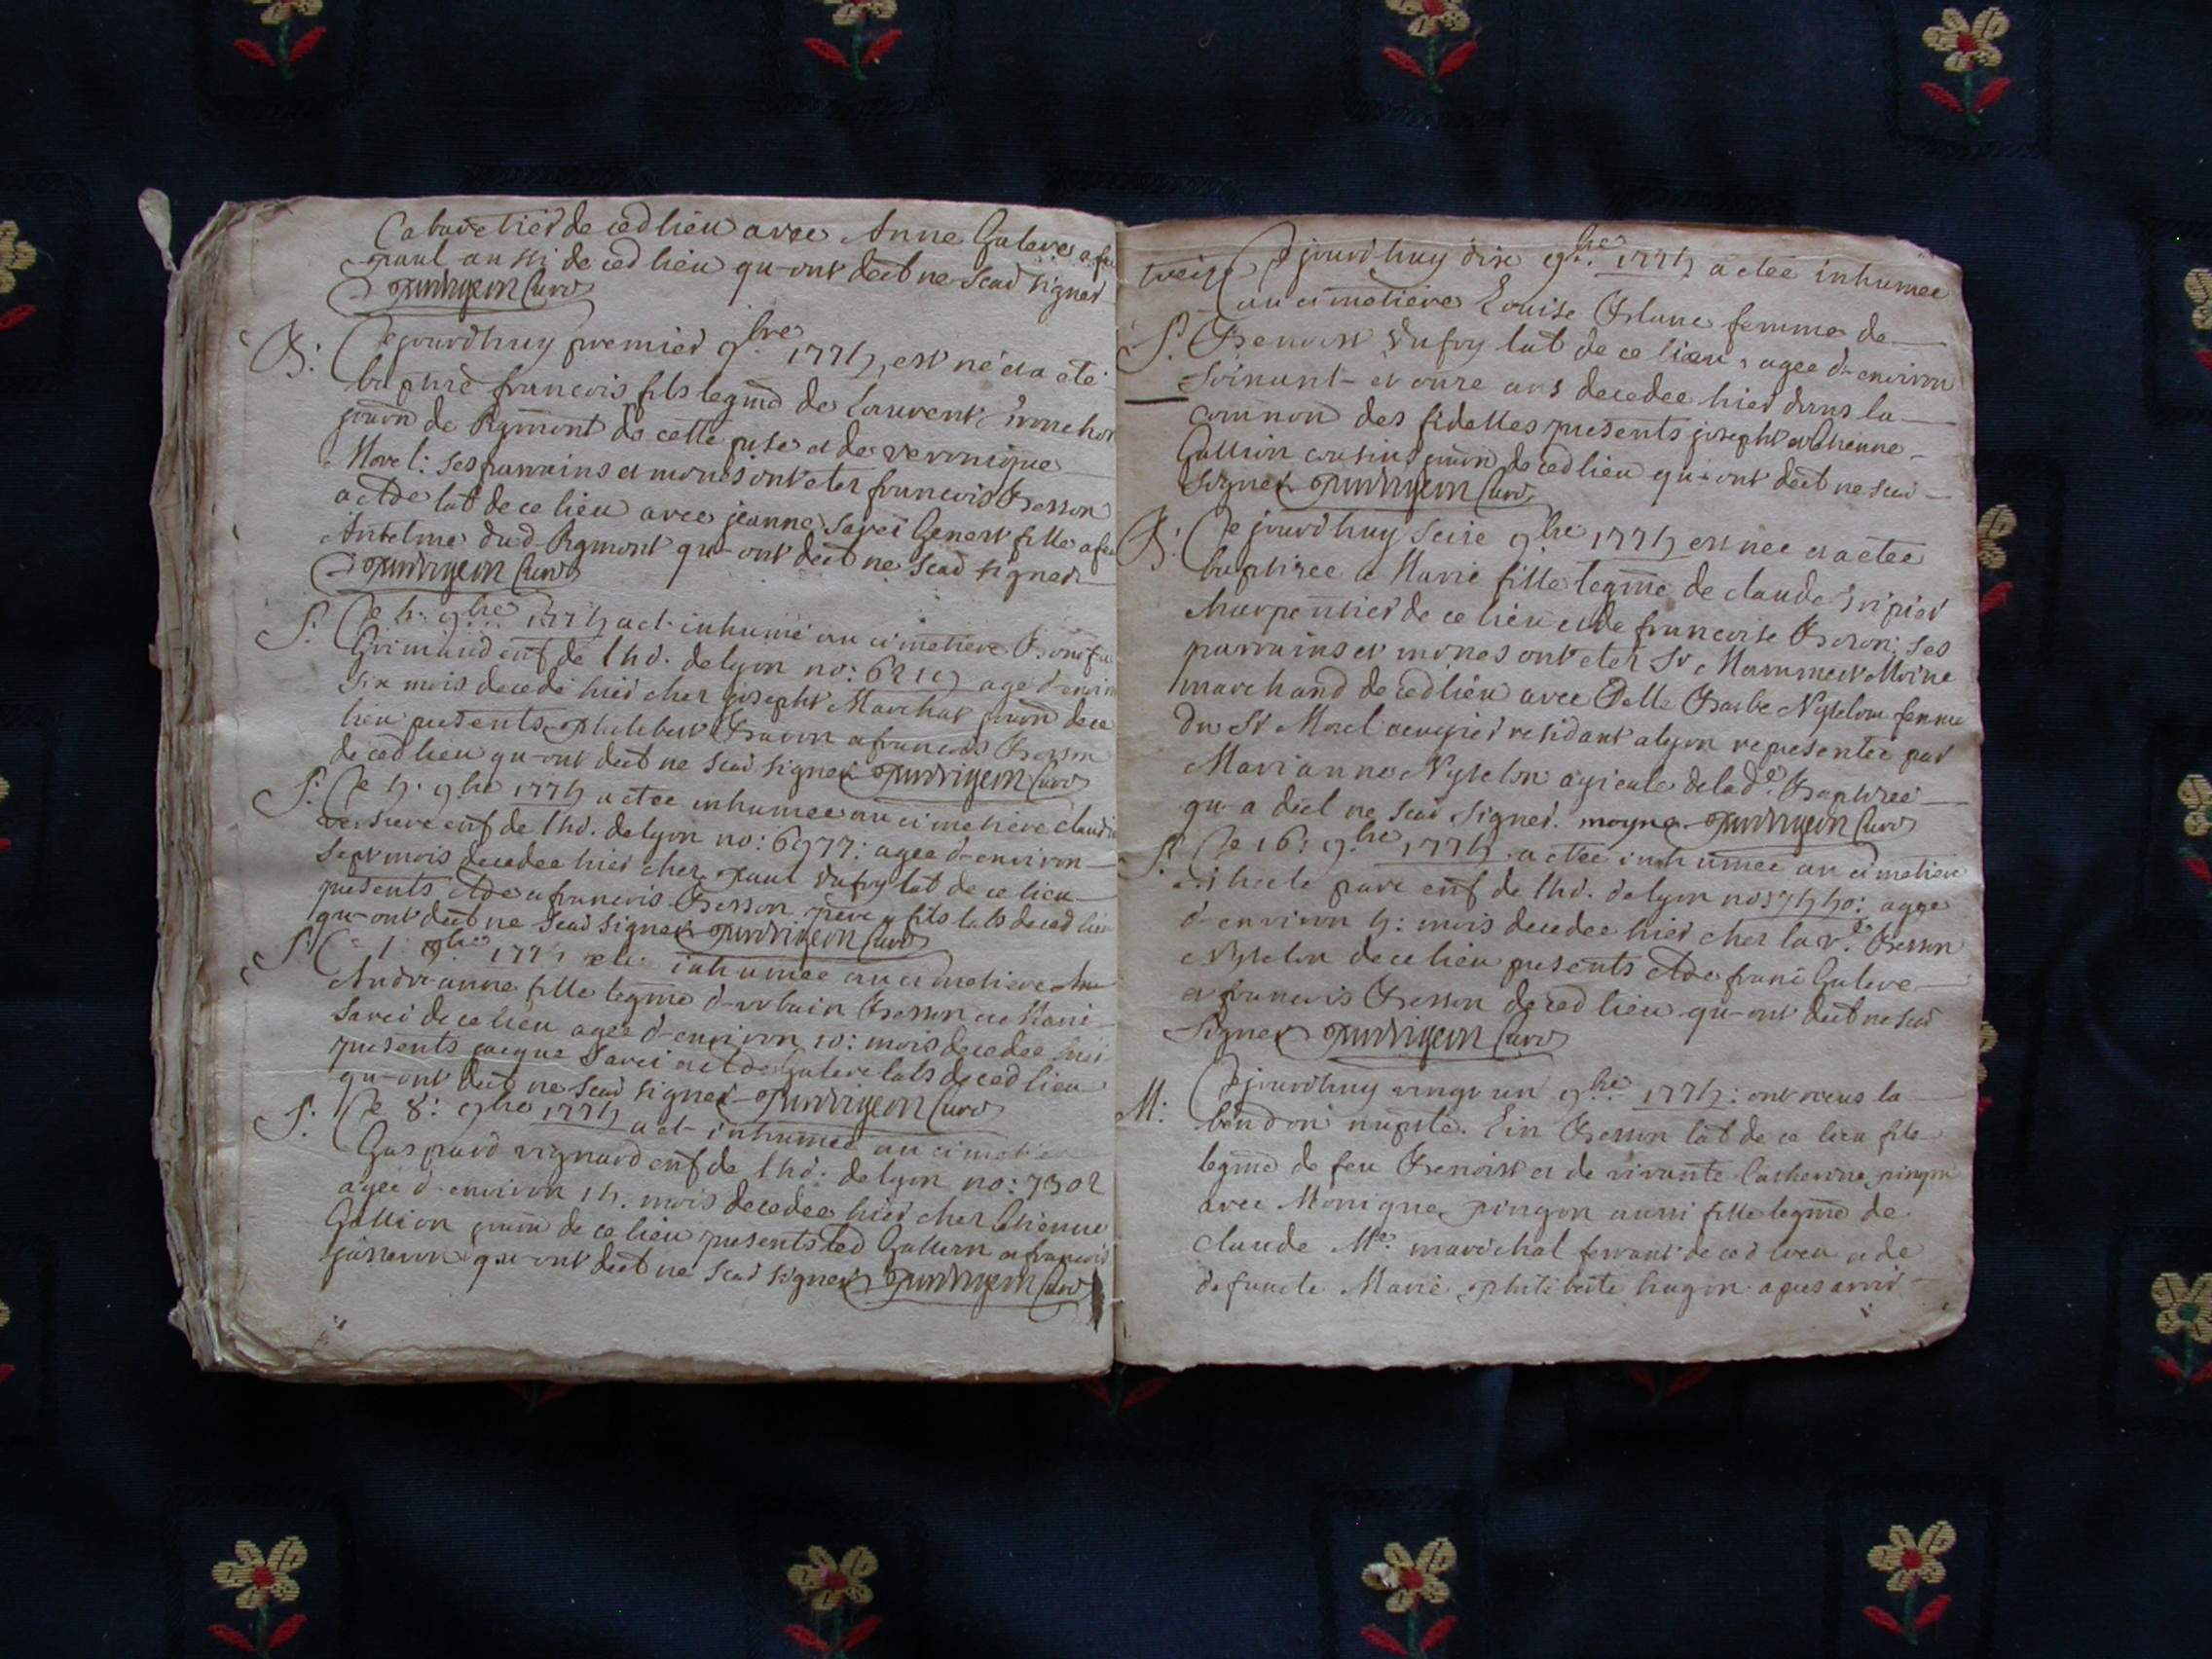 Cabaretier de ced lieu avec Anne Galere
paul aussi de ced lieu qu-ont deet ne scad signer
Curé
B: Cejourdhuy premier 9bre 1774, est né et a eté
baptisé francois fils legme de laurent
journ de Rigmont de cette pse et de veronique
Morel: ses parrains et mones ont eter francois Besson
actde lat de ce lieu avec jeanne Savei Genest fille
Antelme dud Rigmont qu-ont deet ne scad signer
Curé
S: Ce 4: 9bre 1774 a et inhumé au cimetiere
Grimaud enf de lhd. de lyon no: 6219 agé d-environ
six mois decedé hier cher joseph Marchat journ de ce
lieu presents philebert Bavon a francois Besson
de ced lieu qu-ont deet ne scad signer Curé
S: Ce 4: 9bre 1774 a etee inhumee au cimetiere
enf de lhd. de lyon no: 6977: agee d-environ
sept mois decedee hier cher paul Dufoy lat de ce lieu
presents etde a francois Besson pere a fils lats de ced lieu
qu-ont deet ne scad signer Curé
S: 9bre inhumee au cimetiere
fille legme d-urbain Besson et Marie
Savei de ce lieu agee d-environ 10: mois decedee hier
presents jacque Savei Galere lats de ced lieu
qu-ont deet ne scad signer Curé
S: Ce 8: 9bre 1774 a et inhumee au cimetiere
Gaspard vignard enf de lhd: de lyon no: 7302
agee d-environ 14. mois decedee hier cher Etienne
Gallion journ de ce lieu presents led Gallion a francois
qu-ont deet ne scad signer Curé
Cejourdhuy dix 9bre 1774 a etee inhumee
au cimetiere Louise femme de
S: Benoist Dufoy lat de ce lieu, agee d-environ
soixant- et onze ans decedee hier dans la
comnon des fidelles presents joseph et Etienne
Gallion cousins journ de ced lieu qu-ont deet ne scad
signer Curé
B: Cejourdhuy seize 9bre 1774 est nee et a etee
baptisee Marie fille legme de claude
charpentier de ce lieu et de francoise Boron; ses
parrains et mones ont eter Sr Mammest Moine
marchand de ced lieu avec Delle Barbe Nyselon femme
du Sr Morel resident a lyon representee par
Marianne Nyselon ayieule de lade Baptisee
qu-a diet ne scad signer. moyne Curé
S: Ce 16: 9bre 1774. a etee inhumee au cimetiere
enf de lhd. de lyon no: 7440: agee
d-environ 4: mois decedee hier cher la vde Besson
Nyselon de ce lieu presents etde franc Galere
a francois Besson de ced lieu qu-ont deet ne scad
signer Curé
M: Cejourdhuy vingt un 9bre 1774: ont receus la
bendon nupsle. Ein Besson lat de ce lieu fils
legme de feu Benoist et de vivante Catherine pingon
avec Monique pingon aussi fille legme de
claude Me. marechal ferrant de ced lieu et de
defuncte Marie philiberte hugon apres avoir